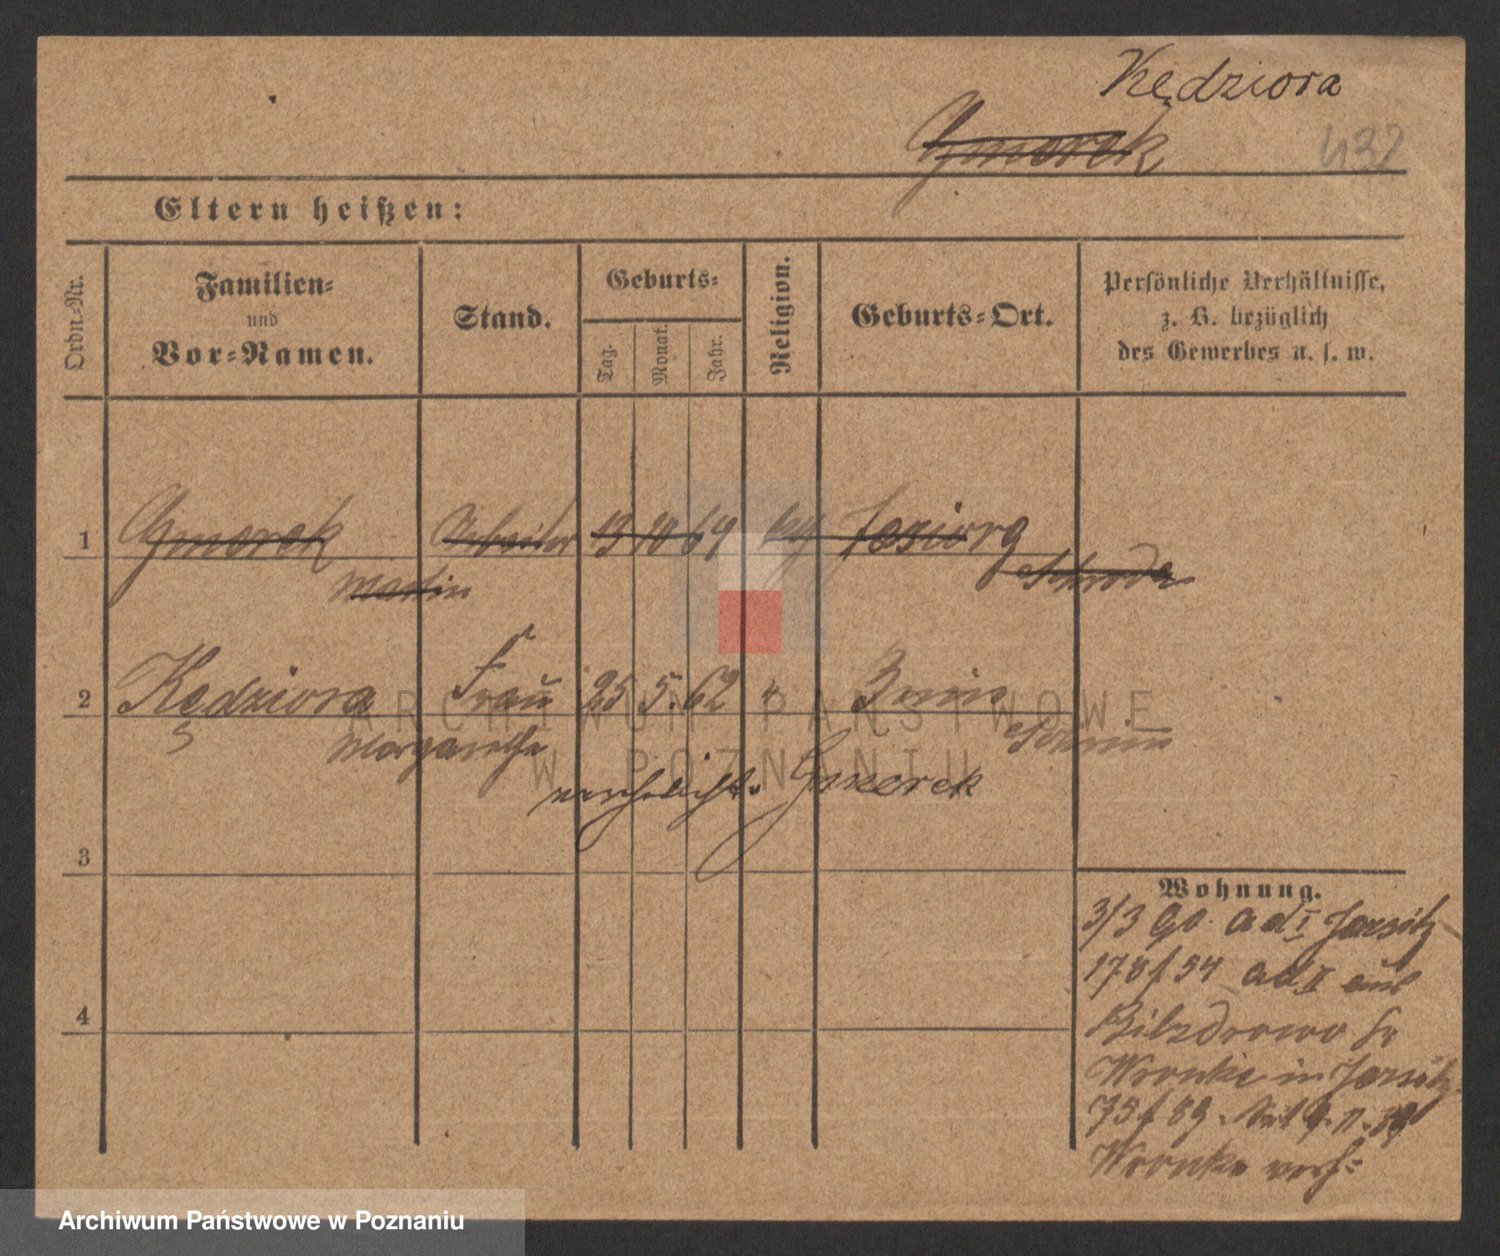 Kędziora
Gmerek 432
Eltern heißen:
Ordn.-Nr.
Familien-
und
Vor-Namen.
Stand.
Geburts-
Tag.
Monat.
Jahr.
Religion.
Geburts-Ort.
Persönliche Verhältnisse,
z. B. bezüglich
des Gewerbes u. s. w.
1 Gmerek Arbeiter 13 10 64 Jeziorg
Martin Schroda
2 Kędziora Frau 25 5. 62 " Bnin
Margarethe Schrimm
verehelicht. Gmerek
3
4
Wohnung.
3/3 90. ad I Jersitz
178/54 ad II aus
Bilzdrowo Kr
Wronke in Jersitz
75/89.
Wronke verz:
ARCHIWUM PAŃSTWOWE
W POZNANIU
Archiwum Państwowe w Poznaniu